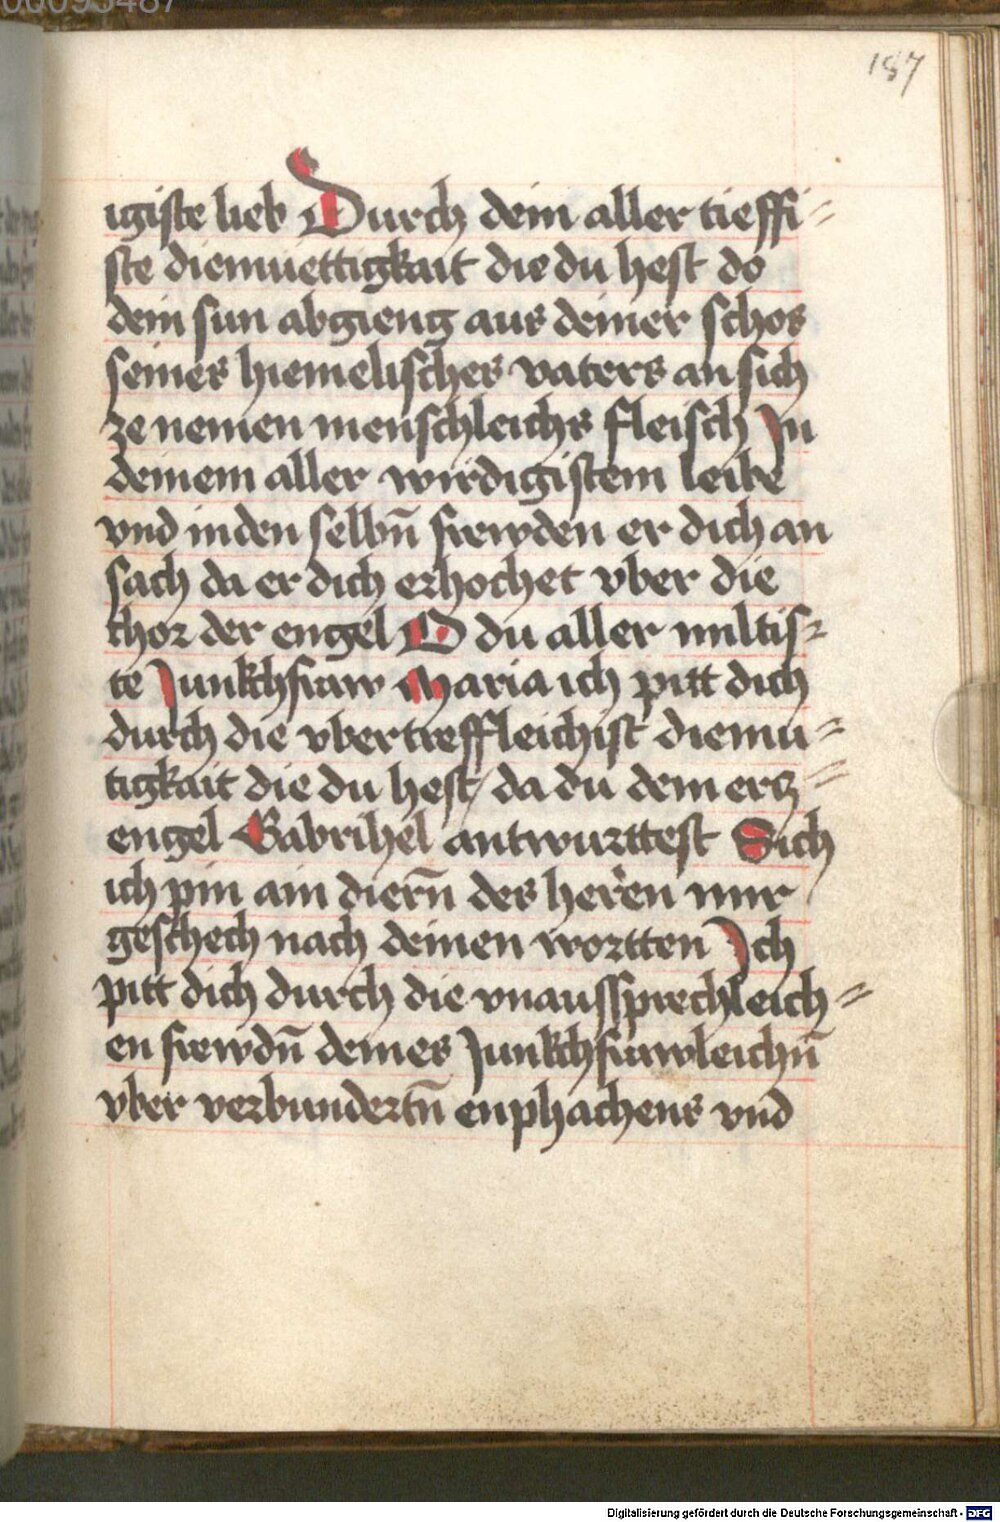 187
igiste lieb Durch dein aller tieffi=
ste diemuettigkait die du hest do
dein sun abgieng aus deiner schos
seines hiemelisches vaters an sich
ze nemen menschleichs fleisch In
deinem aller wirdigistem leibe
vnd in den selbn̄ frewden er dich an
sach da er dich erhochet vber die
khor der engel O du aller miltis=
te Junkchfraw Maria ich pitt dich
durch die vbertreffleichist diemu=
tigkait die du hest / da du dem ercz=
engel Gabrihel antwurttest Sich
ich pin ain diern̄ des herren mir
geschech nach deinen wortten Ich
pitt dich durch die vnaussprechleich=
en frewdn̄ deines Junkchfrawleichn̄
vber verbundertn̄ enphachens vnd
Digitalisierung gefördert durch die Deutsche Forschungsgemeinschaft - DFG